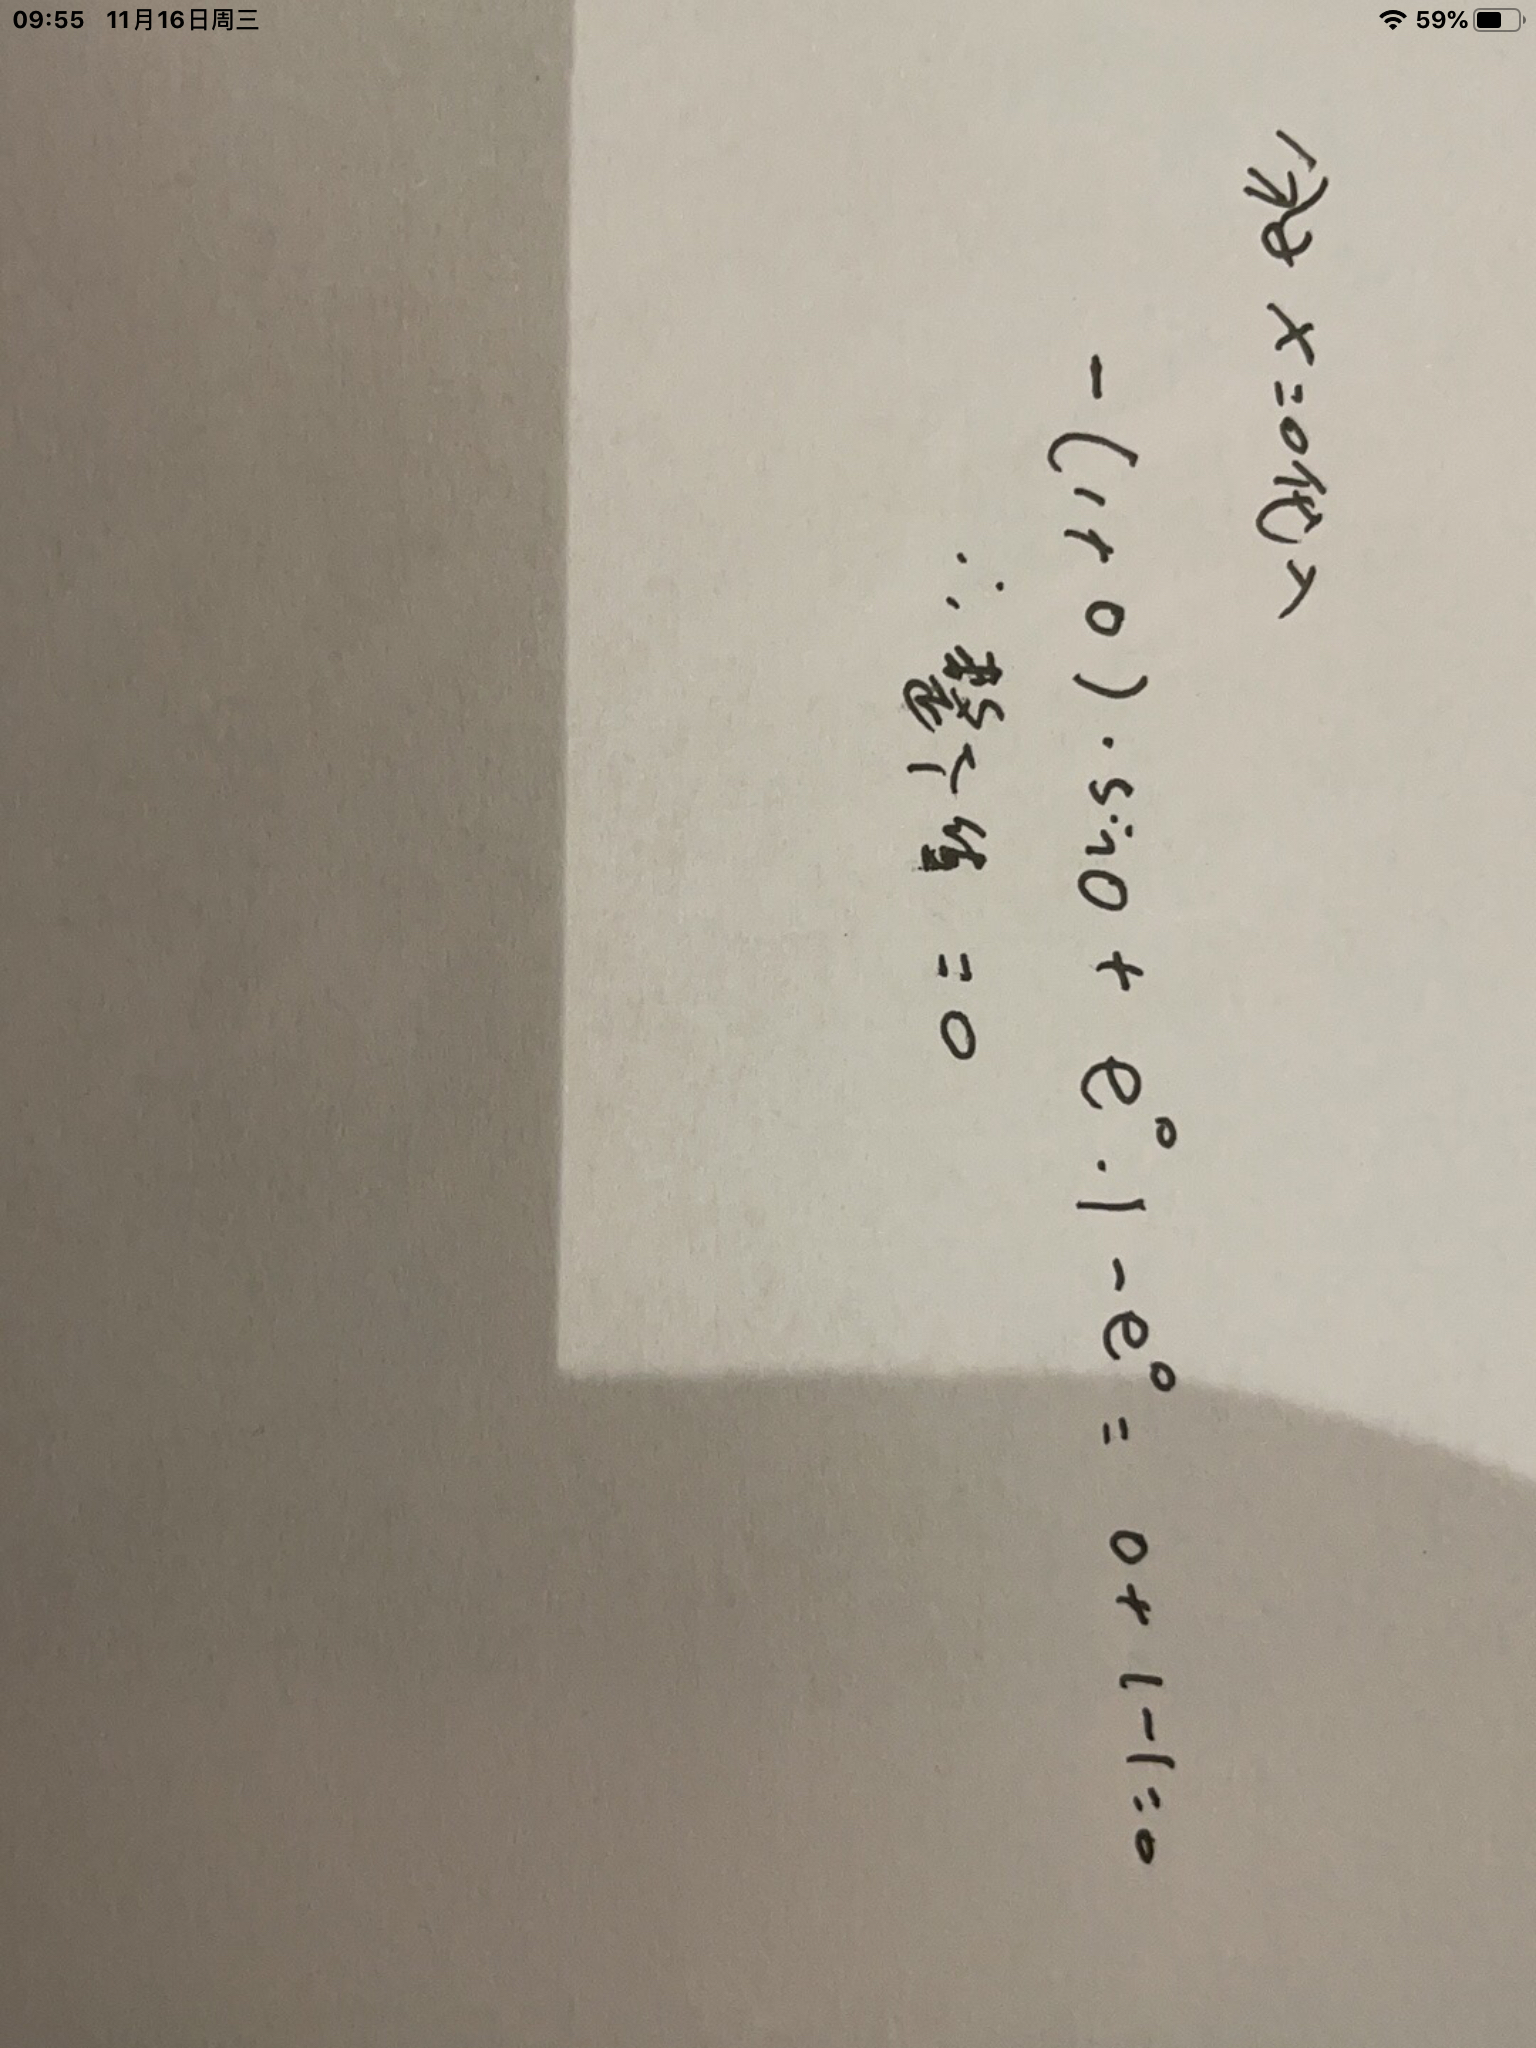 09:55 11月16日周三
59%
取 x=0代入
-(1+0)·sin0+e⁰·1-e⁰=0+1-1=0
∴整个值=0